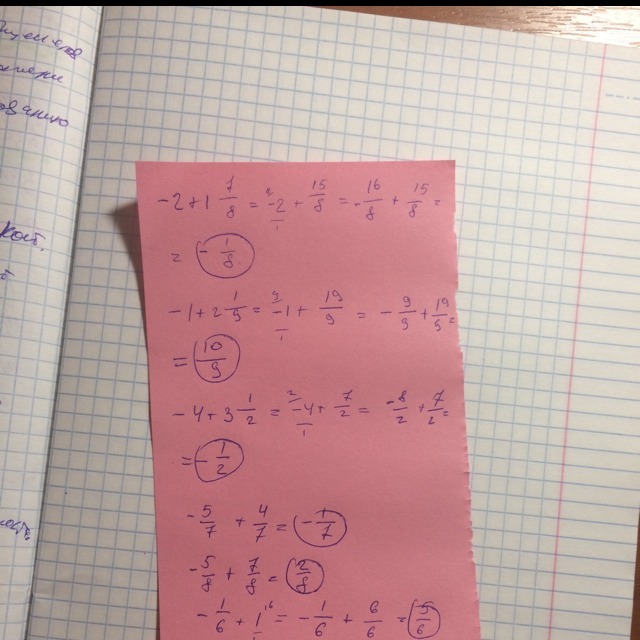 ости.
-2+1 7/8 = -2/1 + 15/8 = -16/8 + 15/8 =
= -1/8
-1+2 1/9 = 9 -1/1 + 19/9 = -9/9 + 19/9 =
= 10/9
-4+3 1/2 = 2 -4/1 + 7/2 = -8/2 + 7/2 =
= -1/2
-5/7 + 4/7 = -1/7
-5/8 + 7/8 = 2/8
-1/6 + 1/1 6 = -1/6 + 6/6 = 5/6